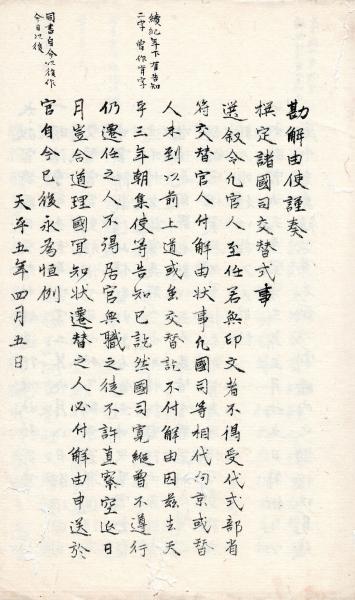 續紀年下有告知
二字 曾作嘗字
同書自今以後作
今日以後
勘解由使謹奏
撰定諸國司交替式事
選敘令凡官人至任若無印文者不得受代式部省
符交替官人付解由状事凡國司等相代向京或替
人未到以前上道或雖交替訖不付解由因茲去天
平三年朝集使等告知已訖然國司寬縱曾不遵行
仍遷任之人不得居官無職之徒不許直寮空延日
月豈合道理國宜知状遷替之人必付解由申送於
官自今已後永為恒例
天平五年四月五日